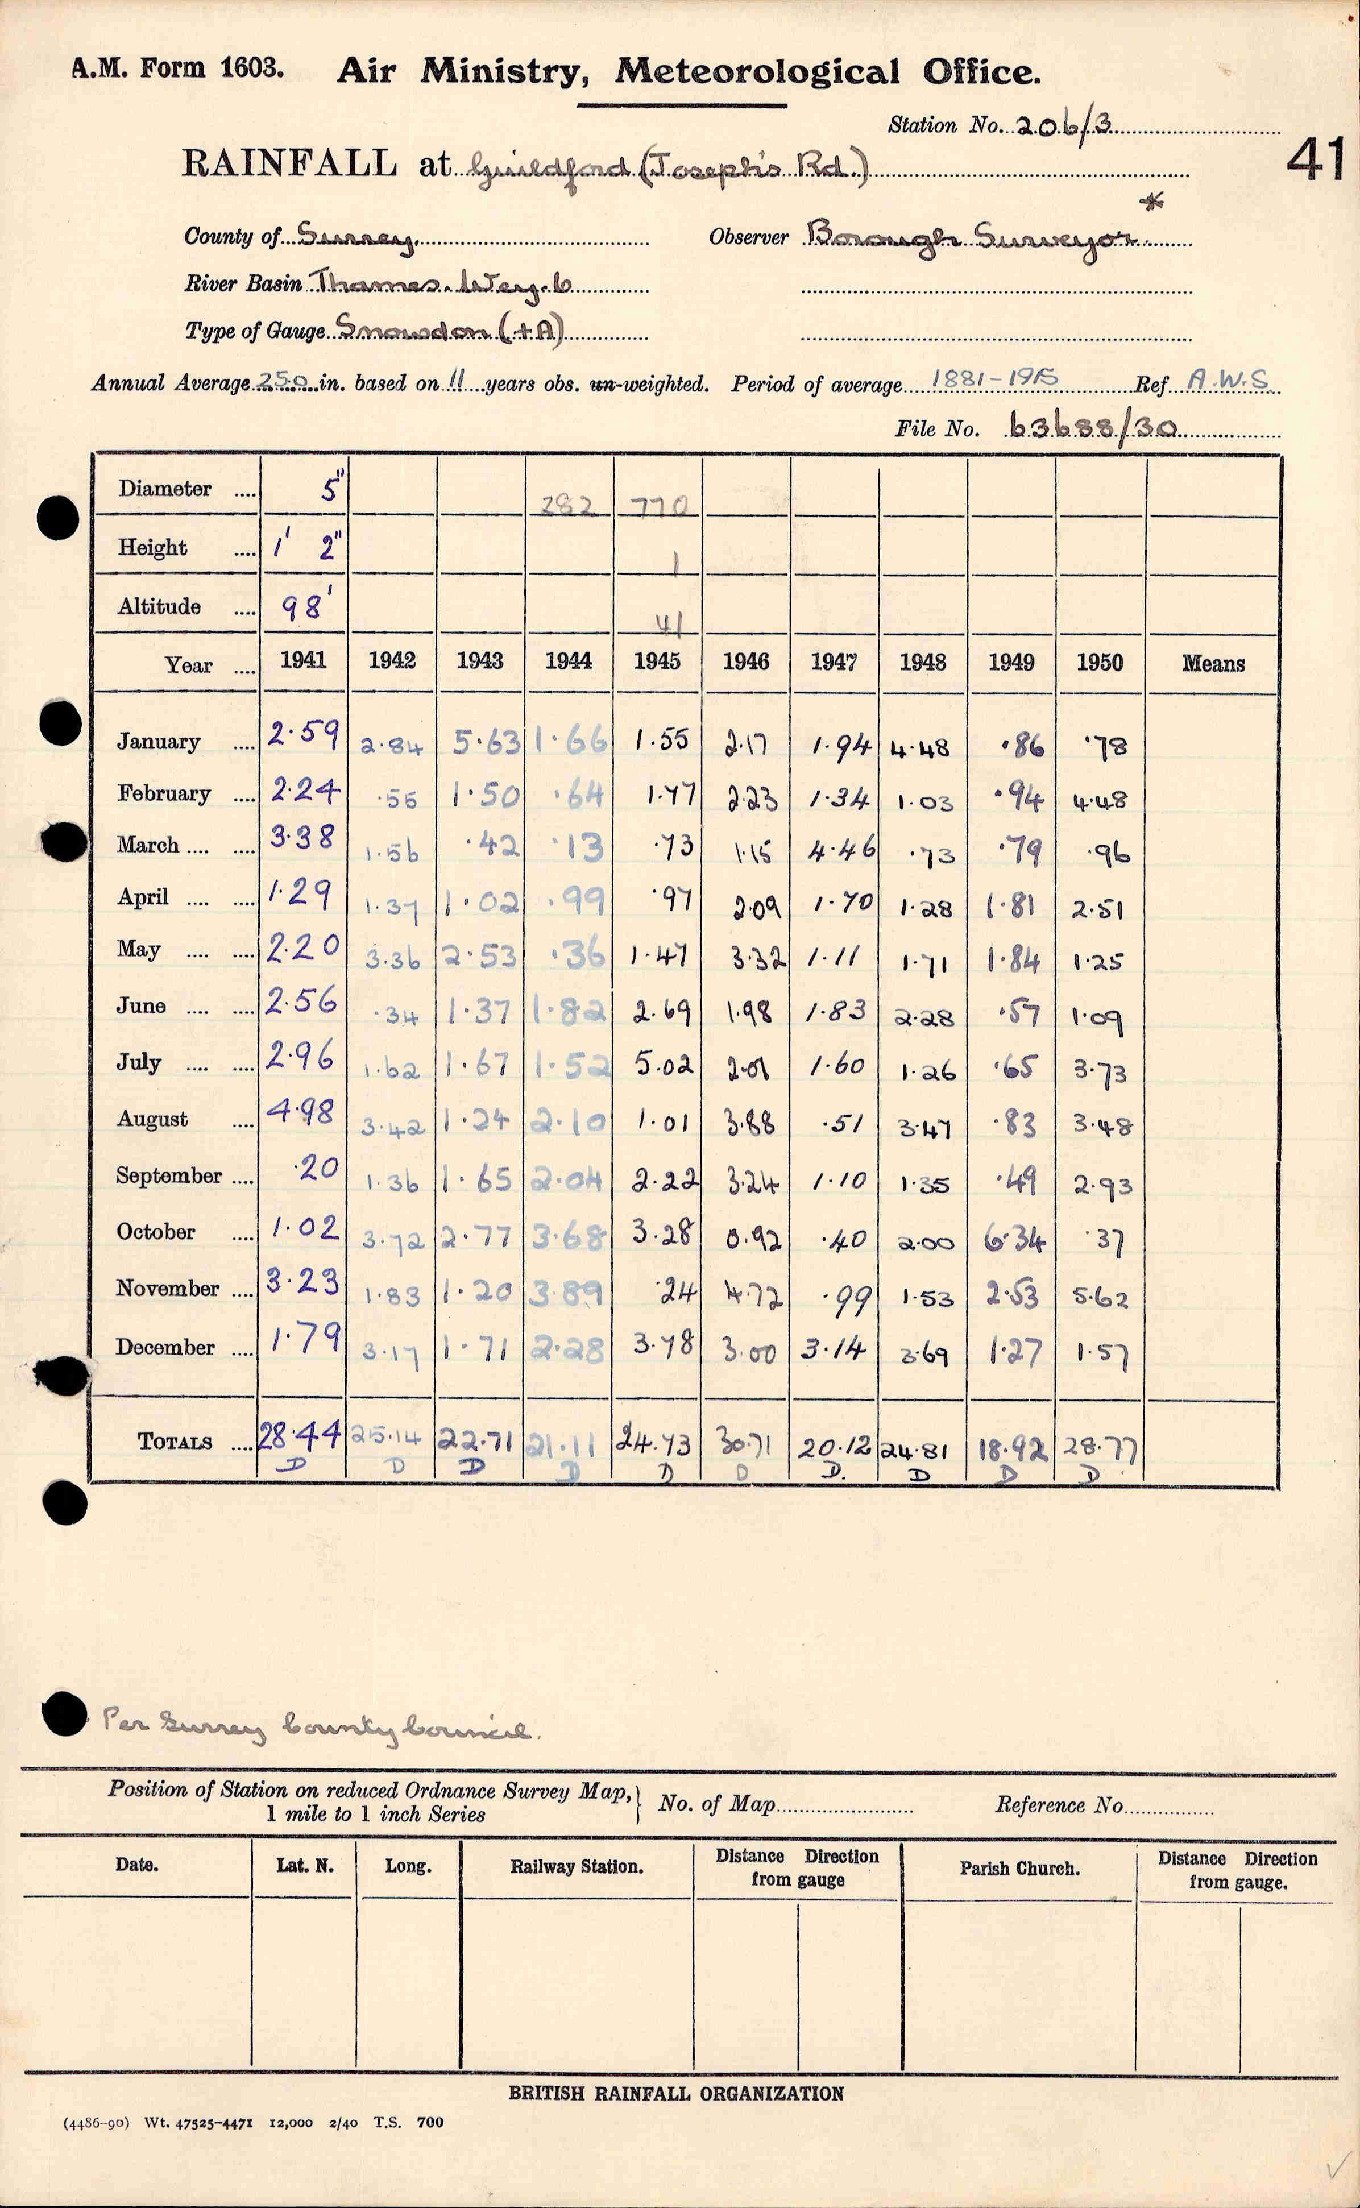 A.M. Form 1603. Air Ministry, Meteorological Office.
Station No. 206/3
41
RAINFALL at Guildford (Joseph's Rd.)
*
County of Surrey Observer Borough Surveyor
River Basin Thames. Wey. 6
Type of Gauge Snowdon (+A)
Annual Average 25.0 in. based on 11 years obs. un-weighted. Period of average 1881-1915 Ref A.W.S
File No. 63688/30
Diameter .... 5" 282 770
Height .... 1' 2" 1
Altitude .... 98' 41
Year .... 1941 1942 1943 1944 1945 1946 1947 1948 1949 1950 Means
January .... 2.59 2.84 5.63 1.66 1.55 2.17 1.94 4.48 .86 .78
February .... 2.24 .55 1.50 .64 1.77 2.23 1.34 1.03 .94 4.48
March .... .... 3.38 1.56 .42 .13 .73 1.15 4.46 .73 .79 .96
April .... .... 1.29 1.37 1.02 .99 .97 2.09 1.70 1.28 1.81 2.51
May .... .... 2.20 3.36 2.53 .36 1.47 3.32 1.11 1.71 1.84 1.25
June .... .... 2.56 .34 1.37 1.82 2.69 1.98 1.83 2.28 .57 1.09
July .... .... 2.96 1.62 1.67 1.52 5.02 2.01 1.60 1.26 .65 3.73
August .... 4.98 3.42 1.24 2.10 1.01 3.88 .51 3.47 .83 3.48
September .... .20 1.36 1.65 2.04 2.22 3.24 1.10 1.35 .49 2.93
October .... 1.02 3.72 2.77 3.68 3.28 0.92 .40 2.00 6.34 .37
November .... 3.23 1.83 1.20 3.89 .24 4.72 .99 1.53 2.53 5.62
December .... 1.79 3.17 1.71 2.28 3.78 3.00 3.14 3.69 1.27 1.57
TOTALS .... 28.44 25.14 22.71 21.11 24.43 30.71 20.12 24.81 18.92 28.77
D D D D D D D. D D D
Per Surrey County Council.
Position of Station on reduced Ordnance Survey Map, } No. of Map Reference No.
1 mile to 1 inch Series
Date. Lat. N. Long. Railway Station. Distance Direction from gauge Parish Church. Distance Direction from gauge.
BRITISH RAINFALL ORGANIZATION
(4486-90) Wt. 47525-4471 12,000 2/40 T.S. 700